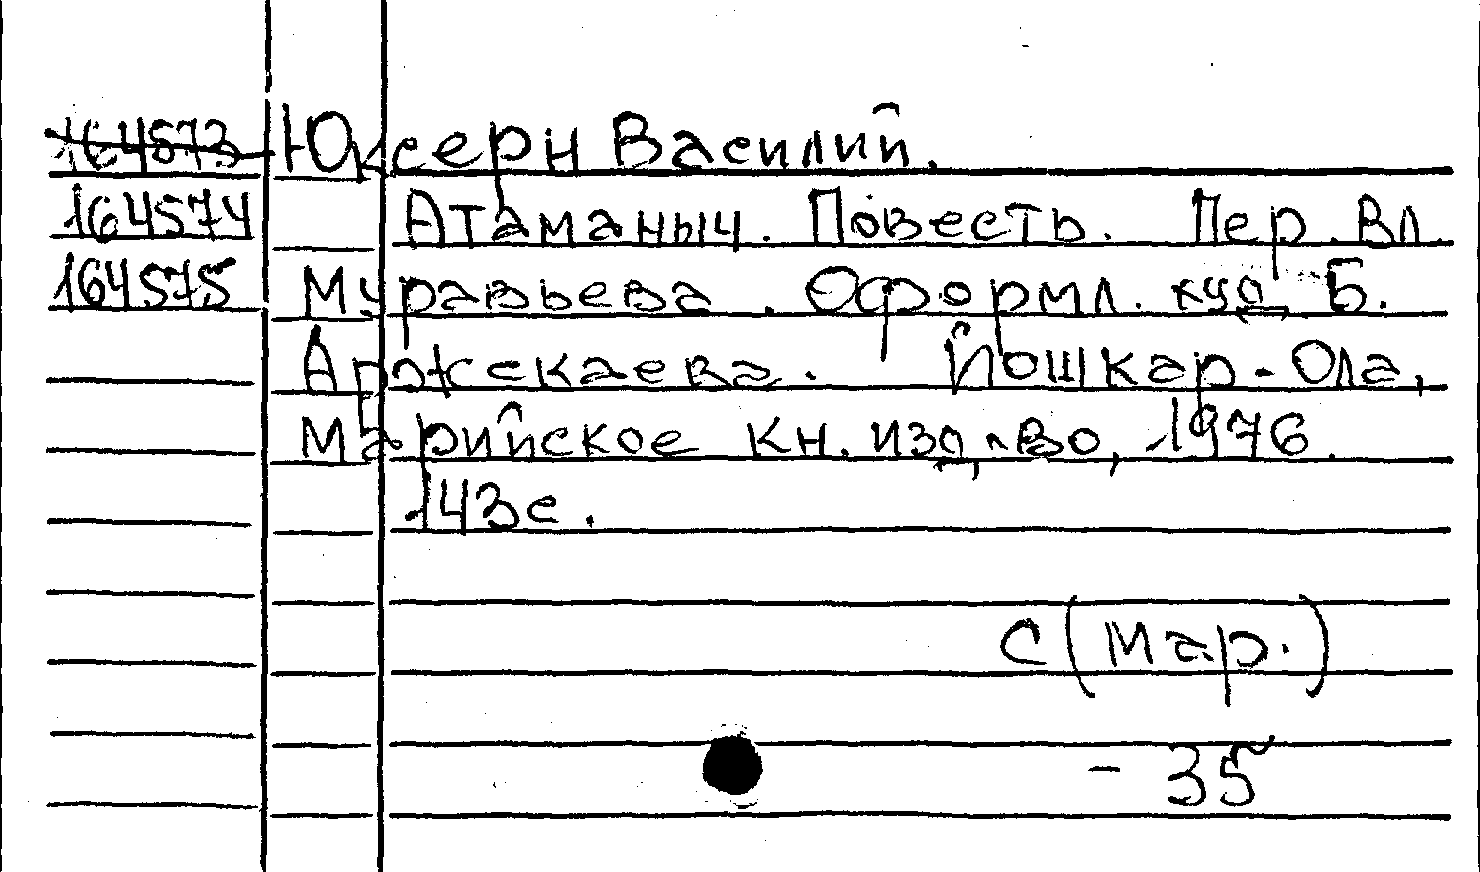 164573 Юксерн Василий.
164574 Атаманыч. Повесть. Пер. Вл.
164575 Муравьева. Оформл. худ. Б.
Аржекаева. Йошкар-Ола,
Марийское кн. изд-во, 1976.
143с.
С(Мар.)
- 35